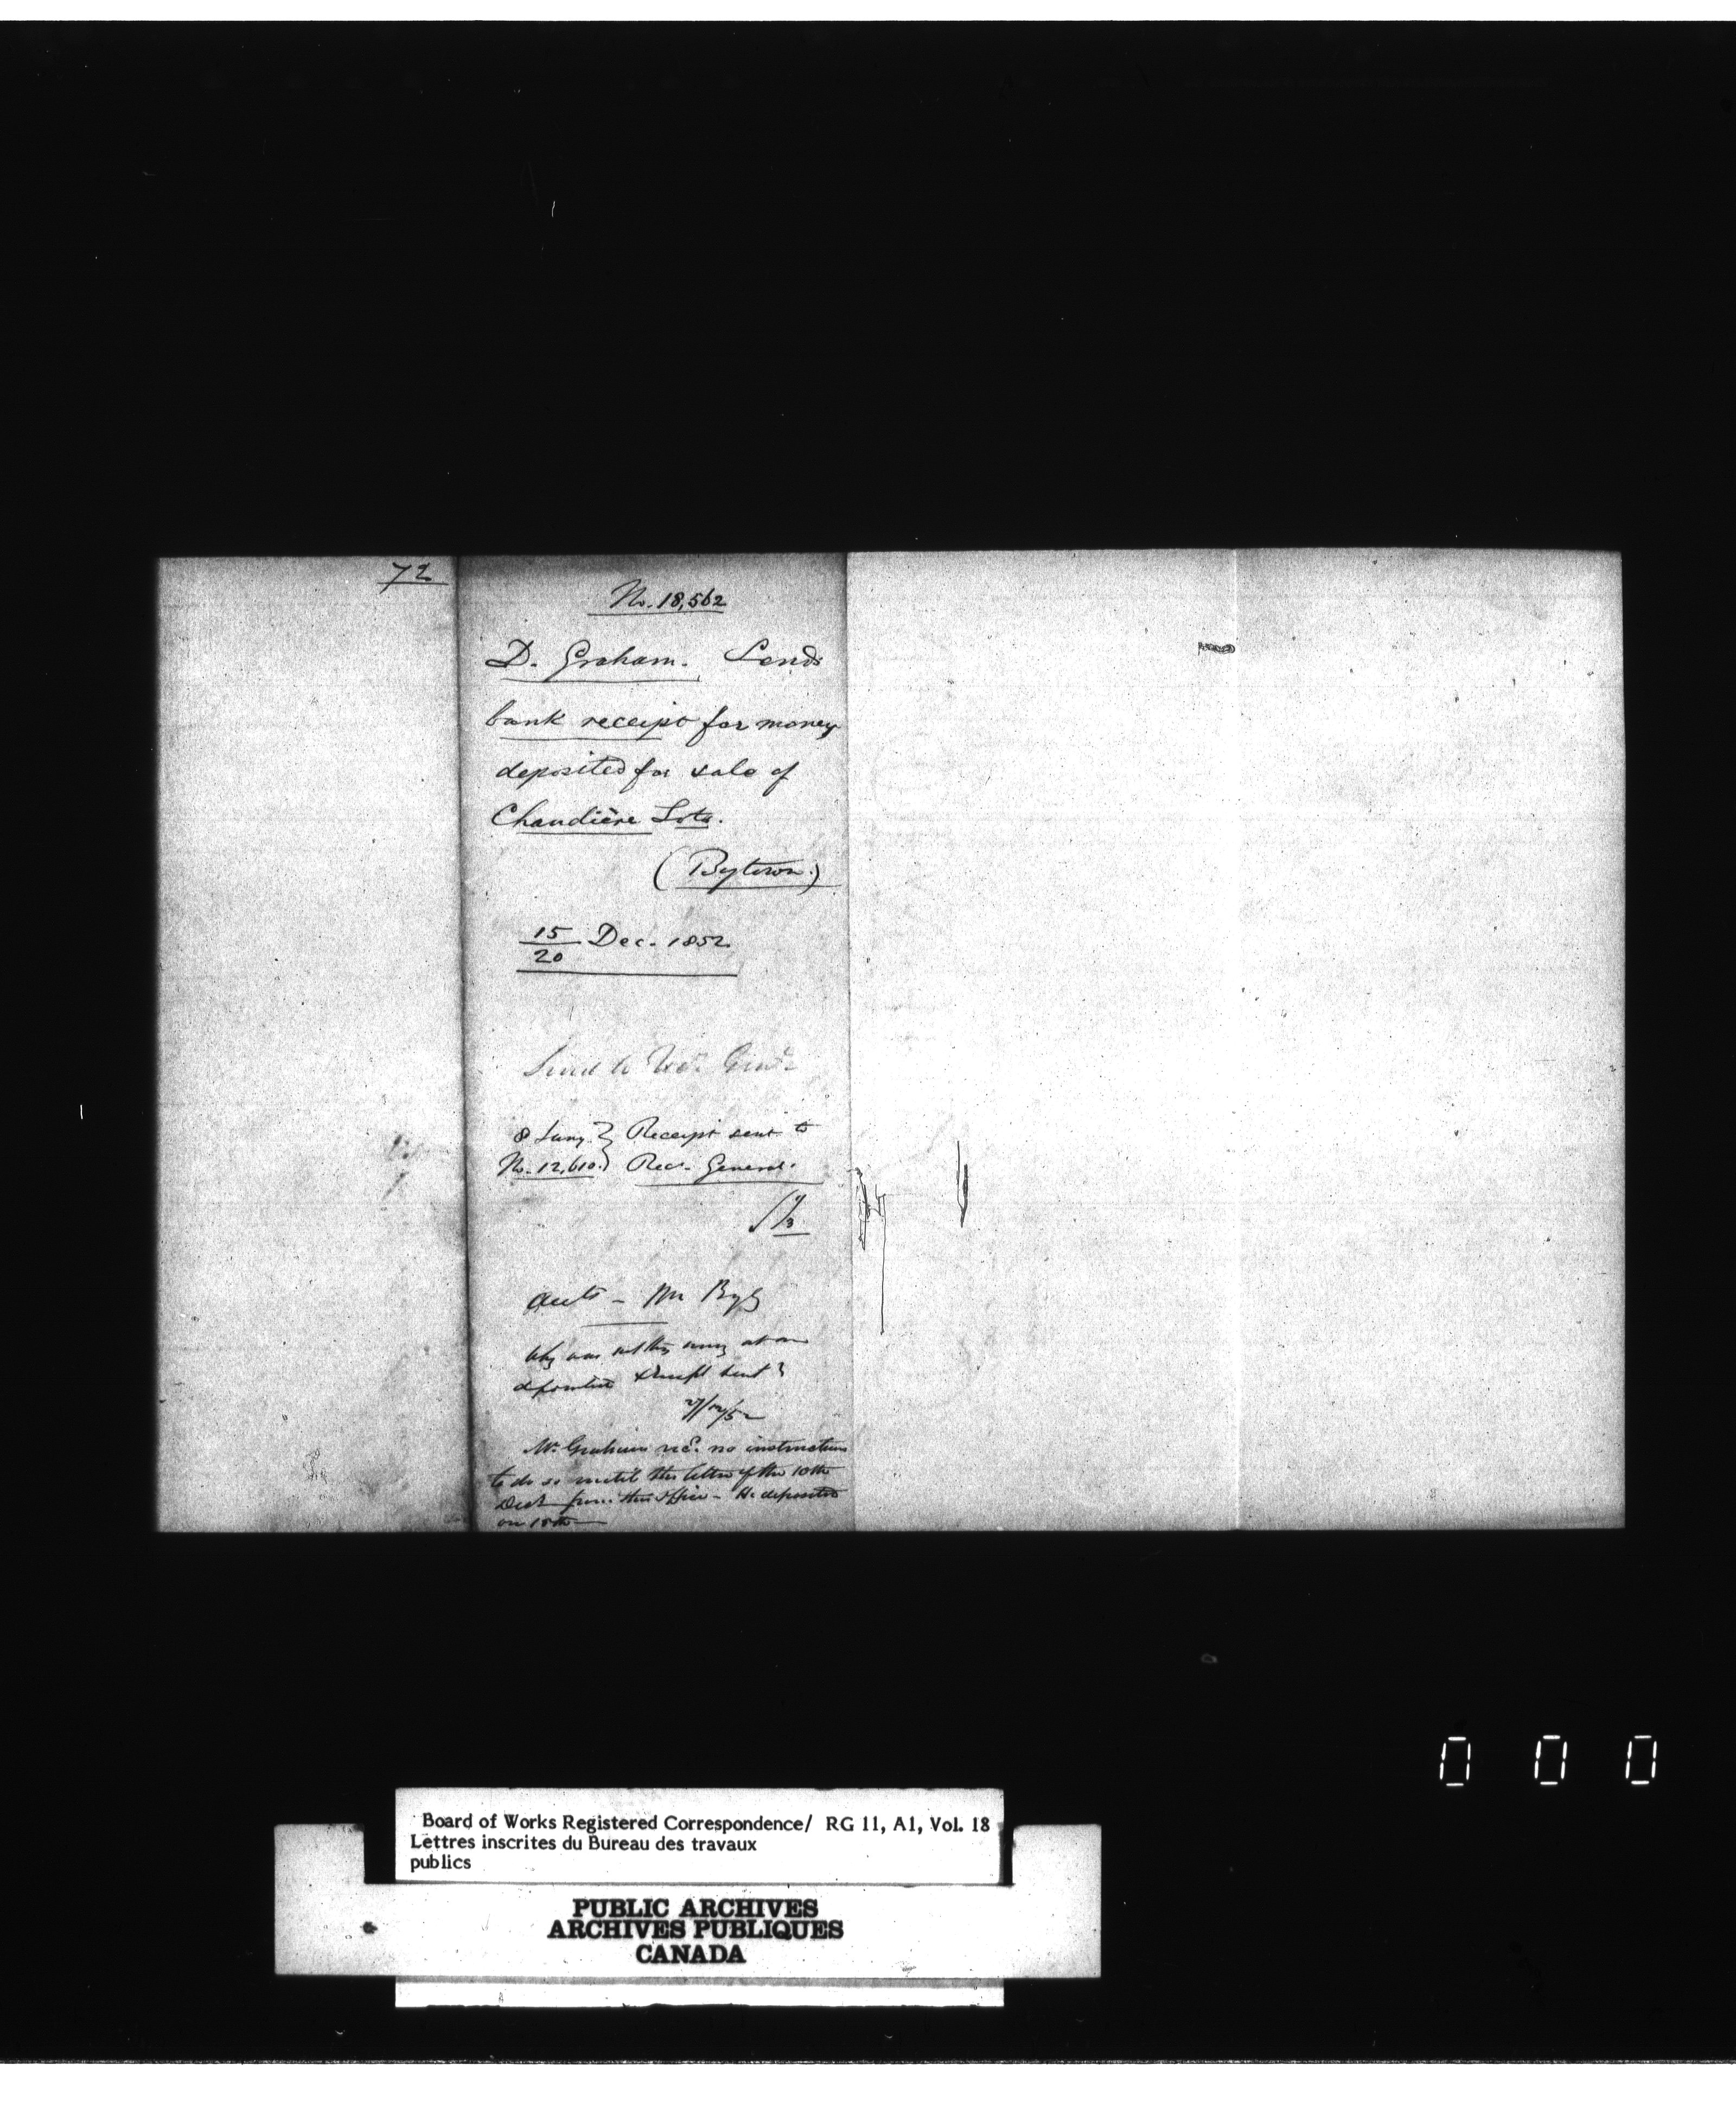 72
No. 18,562
D. Graham. Sends
bank receipt for money
deposited for sale of
Chaudière Lots.
(Bytown.)
15/20 Dec. 1852
Send to Recr. Genl.
8 Jany. } Receipt sent to
No. 12,610. } Recr. General.
Why was not this money at once
deposited & receipt sent?
27/12/52
Mr. Graham recd. no instructions
to do so until the letter of the 10th
Decr. from this office - He deposited
on 15th
Board of Works Registered Correspondence/ RG 11, A1, Vol. 18
Lettres inscrites du Bureau des travaux
publics
PUBLIC ARCHIVES
ARCHIVES PUBLIQUES
CANADA
0 0 0